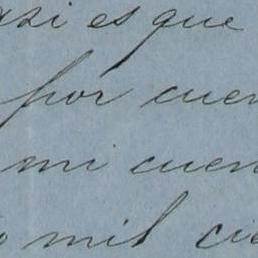 asi es que
por cuen
mi cuen
mil cie